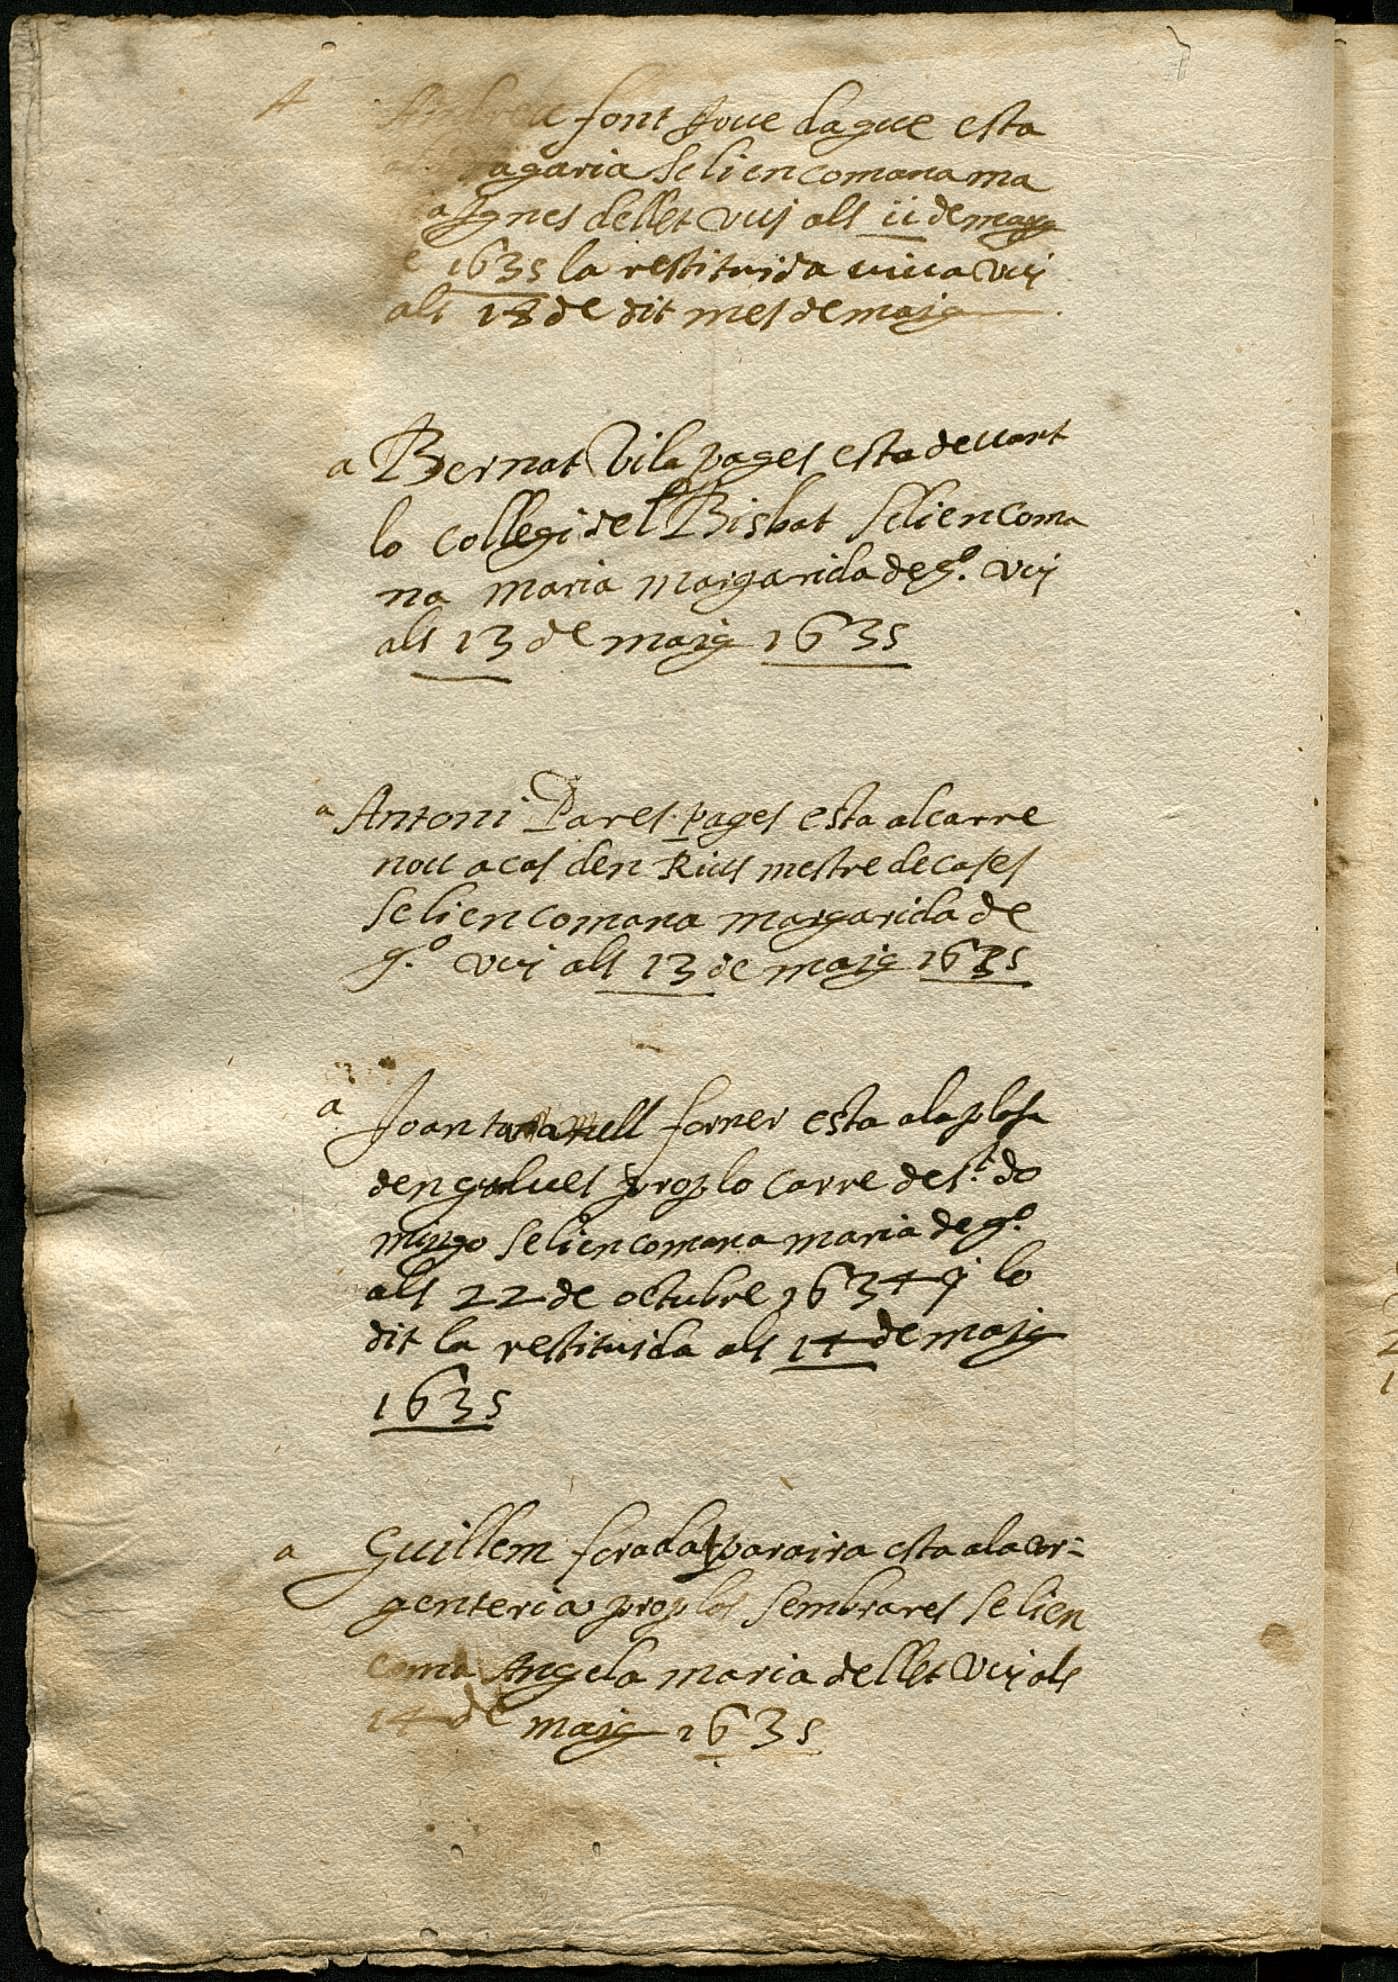 A Andreu font Joue dague esta
agaria Se li encomana ma
a Ignes de llet vuj als ii de maig
e 1635 la restituida viua Vuj
als 18 de dit mes de maig
a Bernat Vila pages esta deuant
lo collegi del Bisbat Se li encoma
na maria margarida de gº. vuj
als 13 de maig 1635
a Antoni Pares pages esta al carre
nou a cas den Rius mestre de cases
Se li encomana margarida de
gº. vuj als 13 de maig 1635
a Joan forner esta a la plasa
den prop lo carre de St. do
mingo Se li encomana maria de gº
als 22 de octubre 1634 y lo
dit la restituida als 14 de maig
1635
a Guillem forada paraira esta a la ar-
genteria prop los Sembrares Se li en
coma Angela maria de llet Vuj als
14 de maig 1635